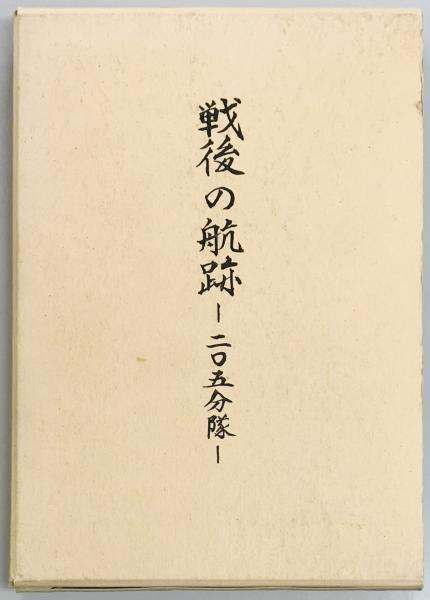 戦後の航跡―二〇五分隊―